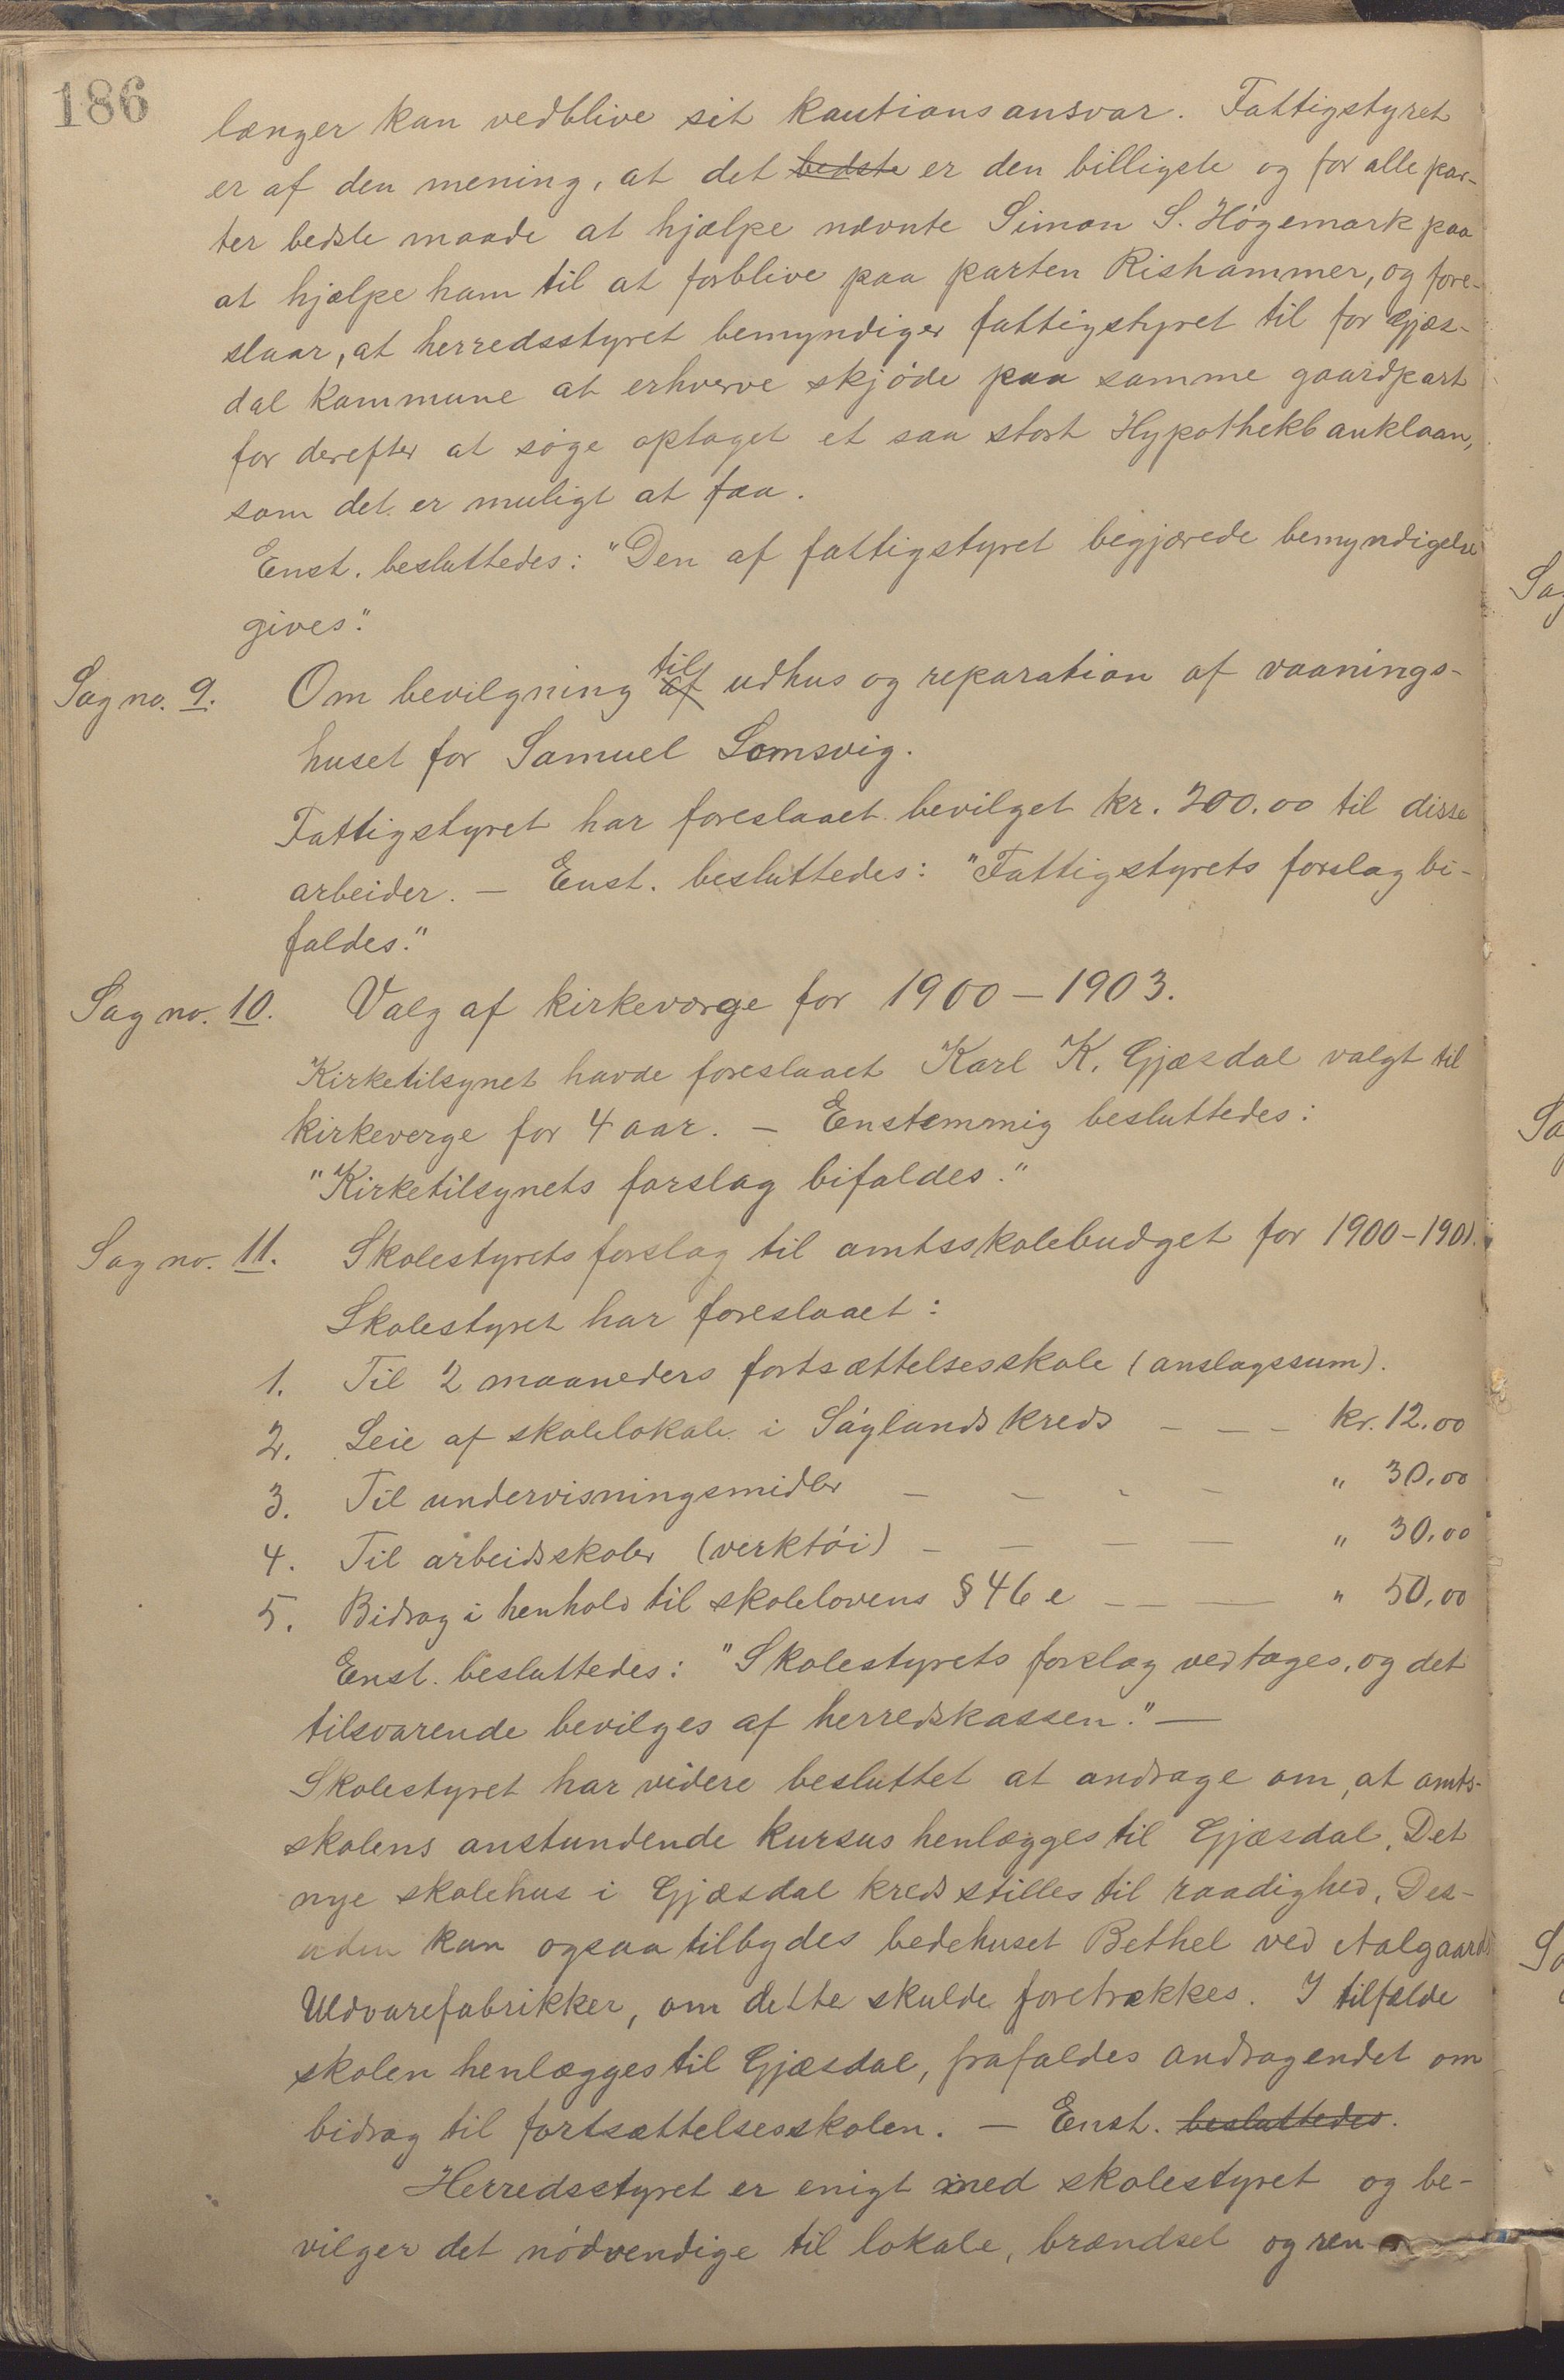 186
længer kan vedblive sit kautionsansvar. Fattigstyret
er af den mening, at det bedste er den billigste og for alle par-
ter bedste maade at hjælpe nævnte Simon S. Högemark paa
at hjælpe ham til at forblive paa parten Rishammer, og fore-
slaar, at herredsstyret bemyndiger fattigstyret til for Gjæs-
dal kommune at erhverve skjöde paa samme gaardpart
for derefter at söge optaget et saa stort Hypothekbanklaan,
som det er muligt at faa.
Enst. besluttedes: "Den af fattigstyret begjærede bemyndigelse
gives."
Sag no. 9. Om bevilgning af til udhus og reparation af vaanings-
huset for Samuel Lomsvig.
Fattigstyret har foreslaaet bevilget kr. 200.00 til disse
arbeider. — Enst. besluttedes: "Fattigstyrets forslag bi-
faldes."
Sag no. 10. Valg af kirkeværge for 1900 – 1903.
Kirketilsynet havde foreslaaet Karl K. Gjæsdal valgt til
kirkeverge for 4 aar. — Enstemmig besluttedes:
"Kirketilsynets forslag bifaldes."
Sag no. 11. Skolestyrets forslag til amtsskolebudget for 1900–1901.
Skolestyret har foreslaaet:
1. Til 2 maaneders fortsættelsesskole (anslagssum).
2. Leie af skolelokale i Söylands kreds — — — kr. 12.00
3. Til undervisningsmidler — — — — " 30.00
4. Til arbeidsskoler (verktöi) — — — — " 30.00
5. Bidrag i henhold til skolelovens § 46 e — — — " 50.00
Enst. besluttedes: "Skolestyrets forslag vedtages, og det
tilsvarende bevilges af herredskassen." —
Skolestyret har videre besluttet at andrage om, at amts-
skolens anstundende kursus henlægges til Gjæsdal. Det
nye skolehus i Gjæsdal kreds stilles til raadighed. Des-
uden kan ogsaa tilbydes bedehuset Bethel ved Aalgaards
Uldvarefabrikker, om dette skulde foretrækkes. I tilfælde
skolen henlægges til Gjæsdal, frafaldes andragendet om
bidrag til fortsættelsesskolen. — Enst. besluttedes.
Herredsstyret er enigt med skolestyret og be-
vilger det nödvendige til lokale, brændsel og ren